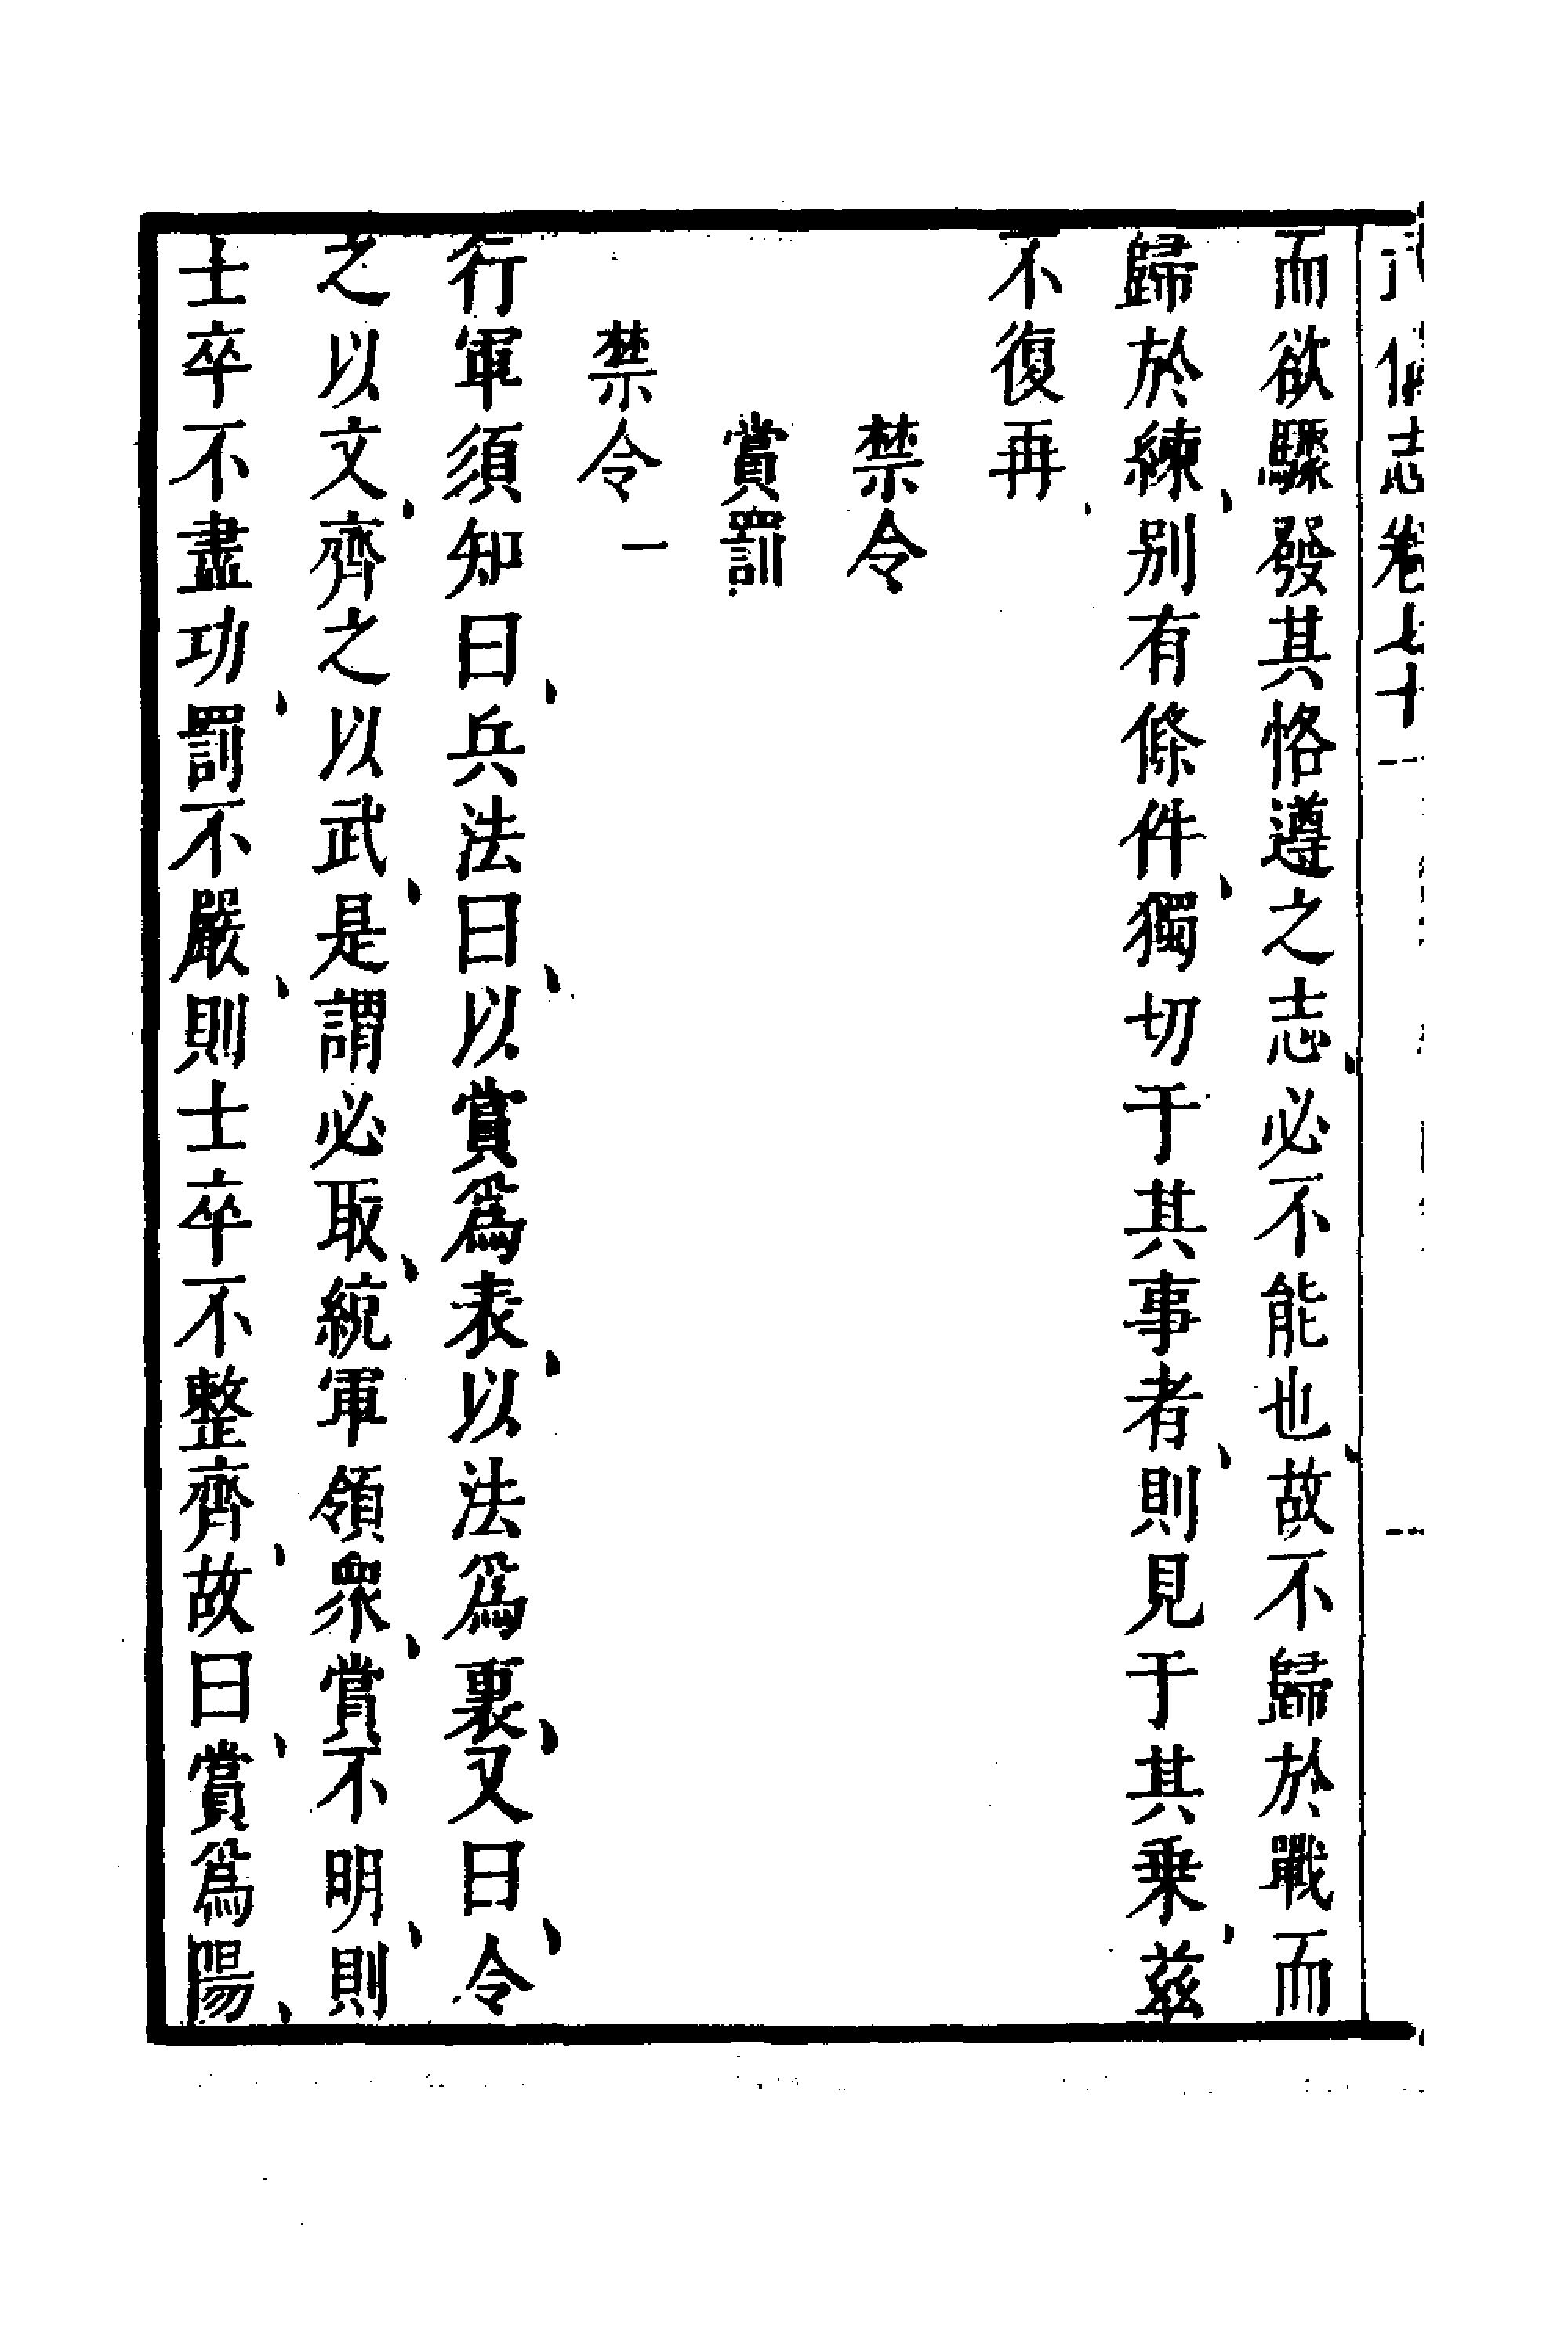 武備志卷七十
而欲驟發其恪遵之志、必不能也、故不歸於戰而
歸於練、别有條件、獨切于其事者、則見于其乗、茲
不復再、
禁令
賞罰
禁令一
行軍須知曰、兵法曰、以賞爲表、以法爲裏、又曰、令
之以文、齊之以武、是謂必取、統軍領衆、賞不明、則
士卒不盡功、罰不嚴、則士卒不整齊、故曰、賞爲陽、